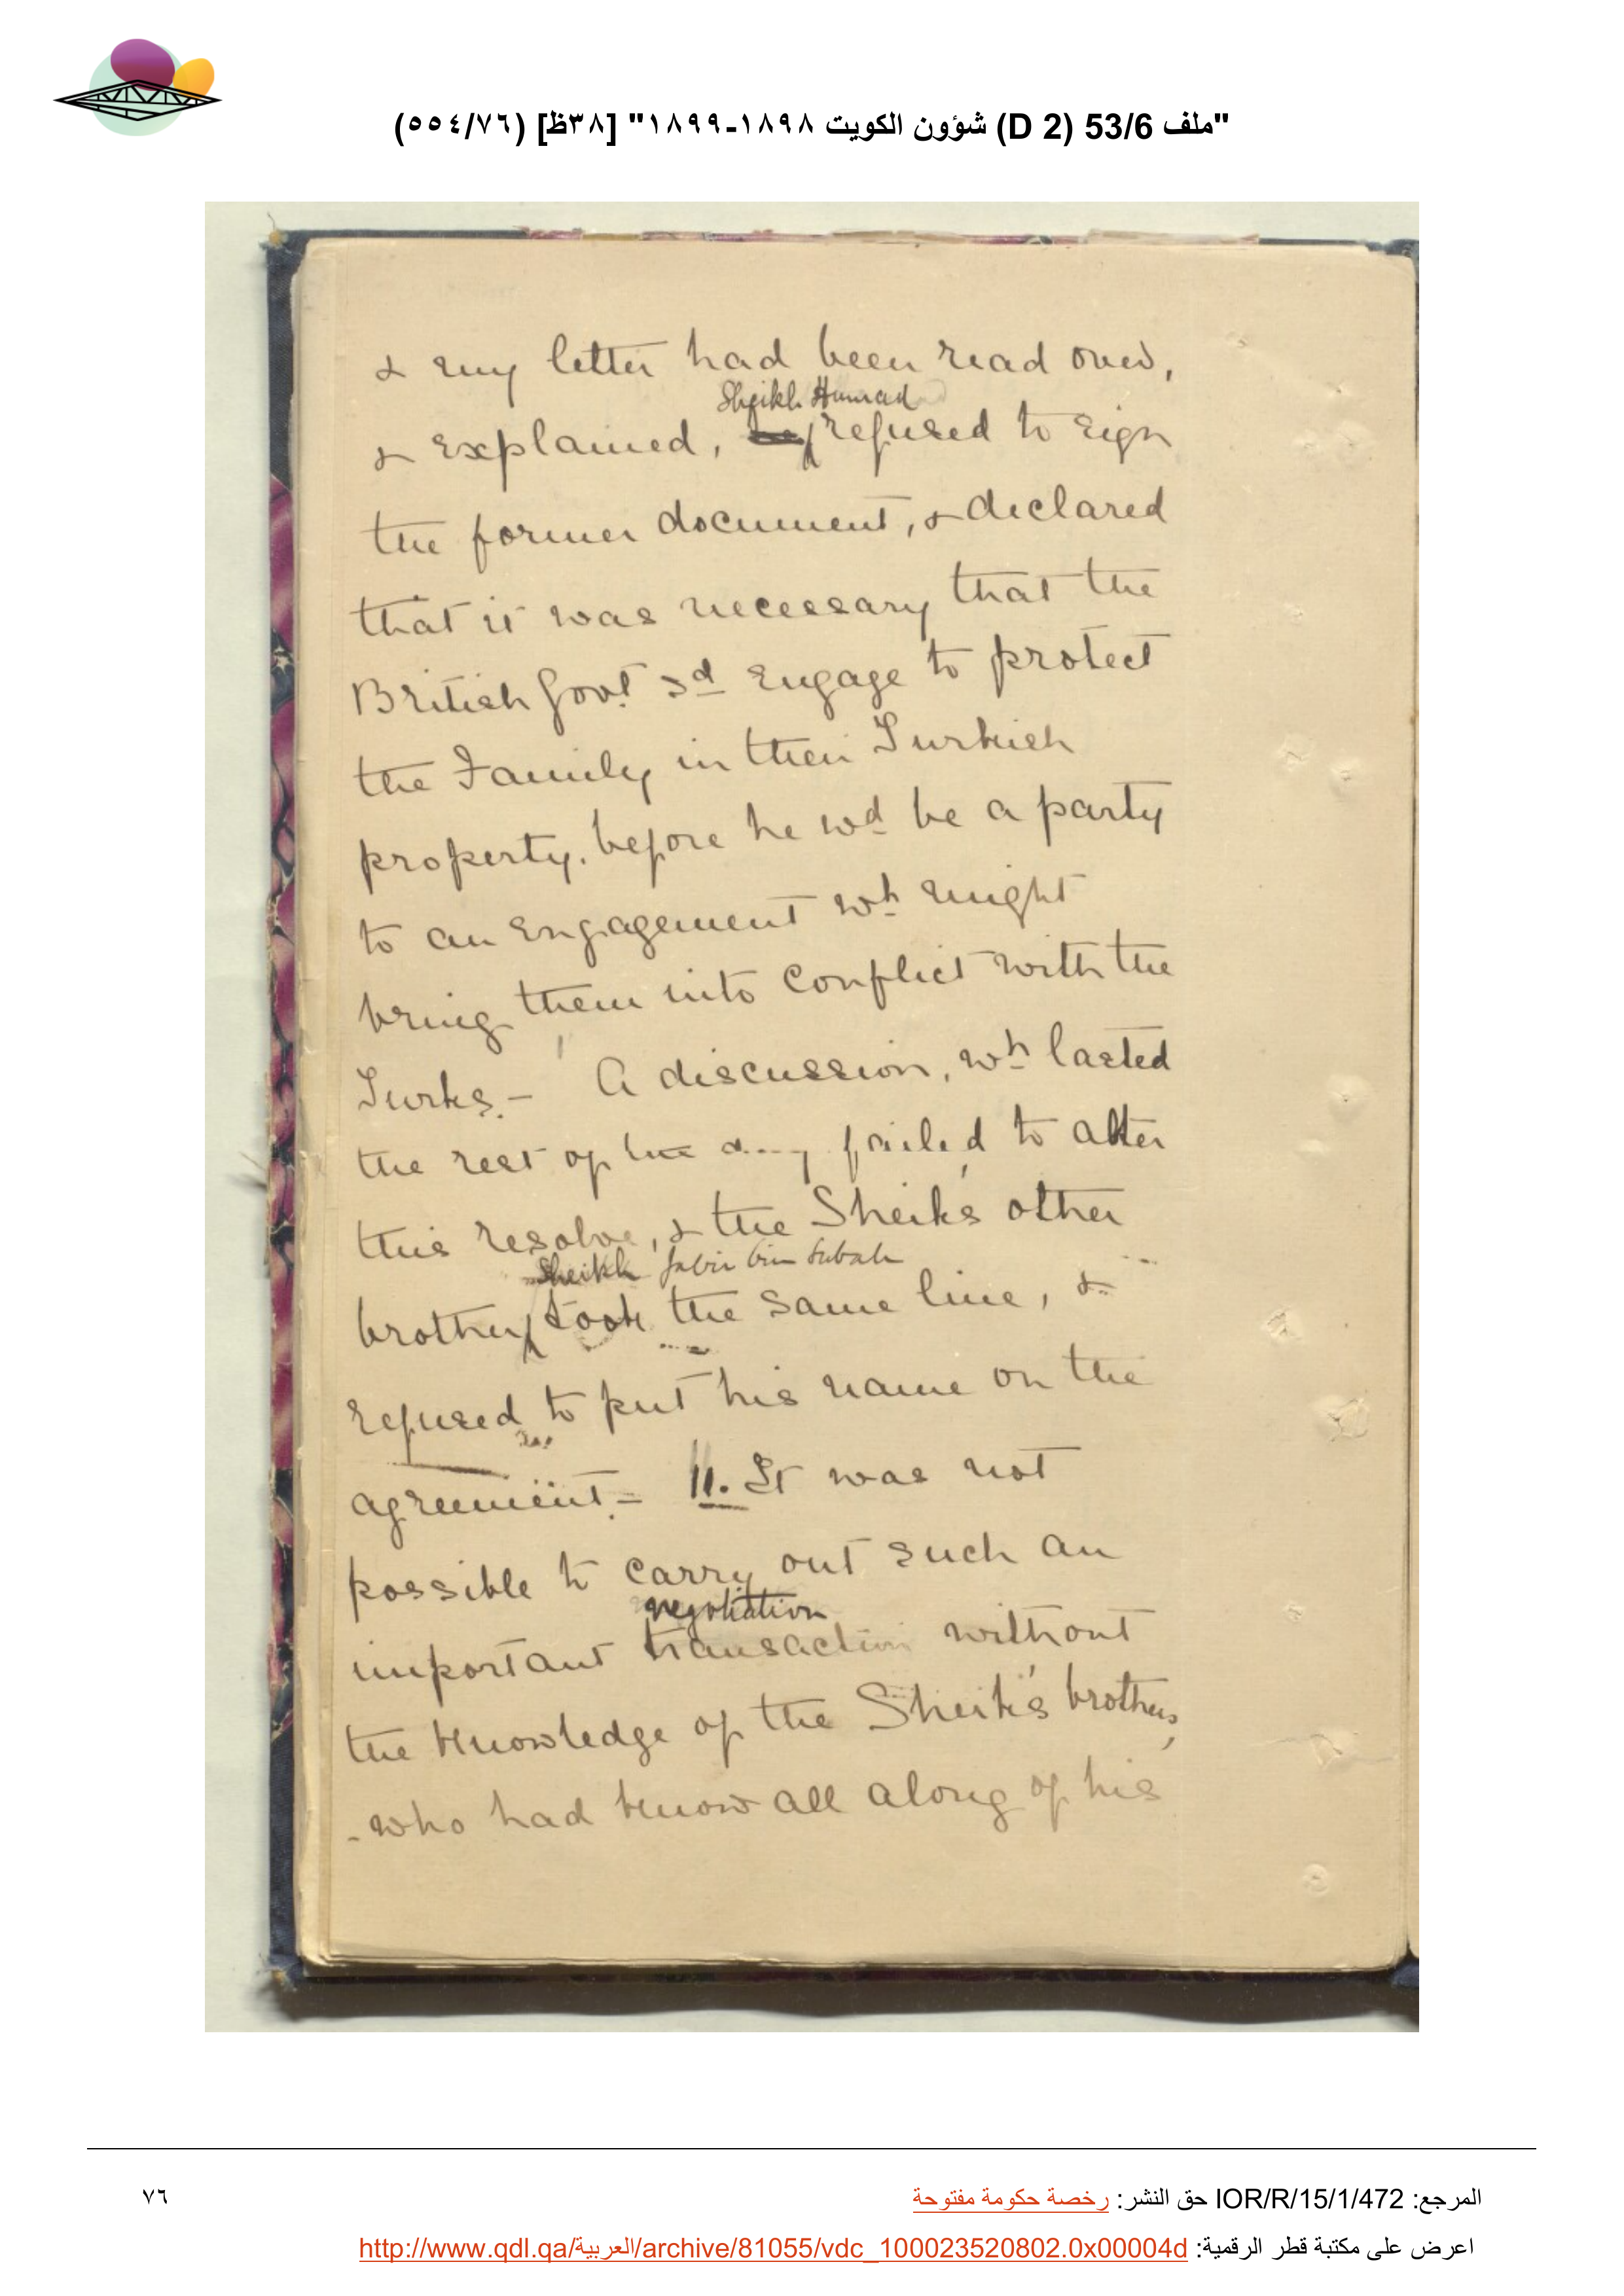 "ملف 53/6 (D 2) شؤون الكويت ١٨٩٨-١٨٩٩" [٣٨ظ] (٥٥٤/٧٦)
& my letter had been read over,
Sheikh Hamad
& explained, refused to sign
the former document, & declared
that it was necessary that the
British Govt. sd. engage to protect
the Family in their Turkish
property, before he wd. be a party
to an engagement wh. might
bring them into conflict with the
Turks. - A discussion, wh. lasted
the rest of the day failed to alter
this resolve, & the Sheik's other
Sheikh Jabir bin Subah
brother took the same line, &
refused to put his name on the
agreement. - 11. It was not
possible to carry out such an
negotiation
important transaction without
the knowledge of the Sheik's brothers,
- who had know all along of his
المرجع: IOR/R/15/1/472 حق النشر: رخصة حكومة مفتوحة
٧٦
اعرض على مكتبة قطر الرقمية: http://www.qdl.qa/العربية/archive/81055/vdc_100023520802.0x00004d